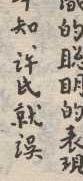 的聪明的表现
知，许氏就误